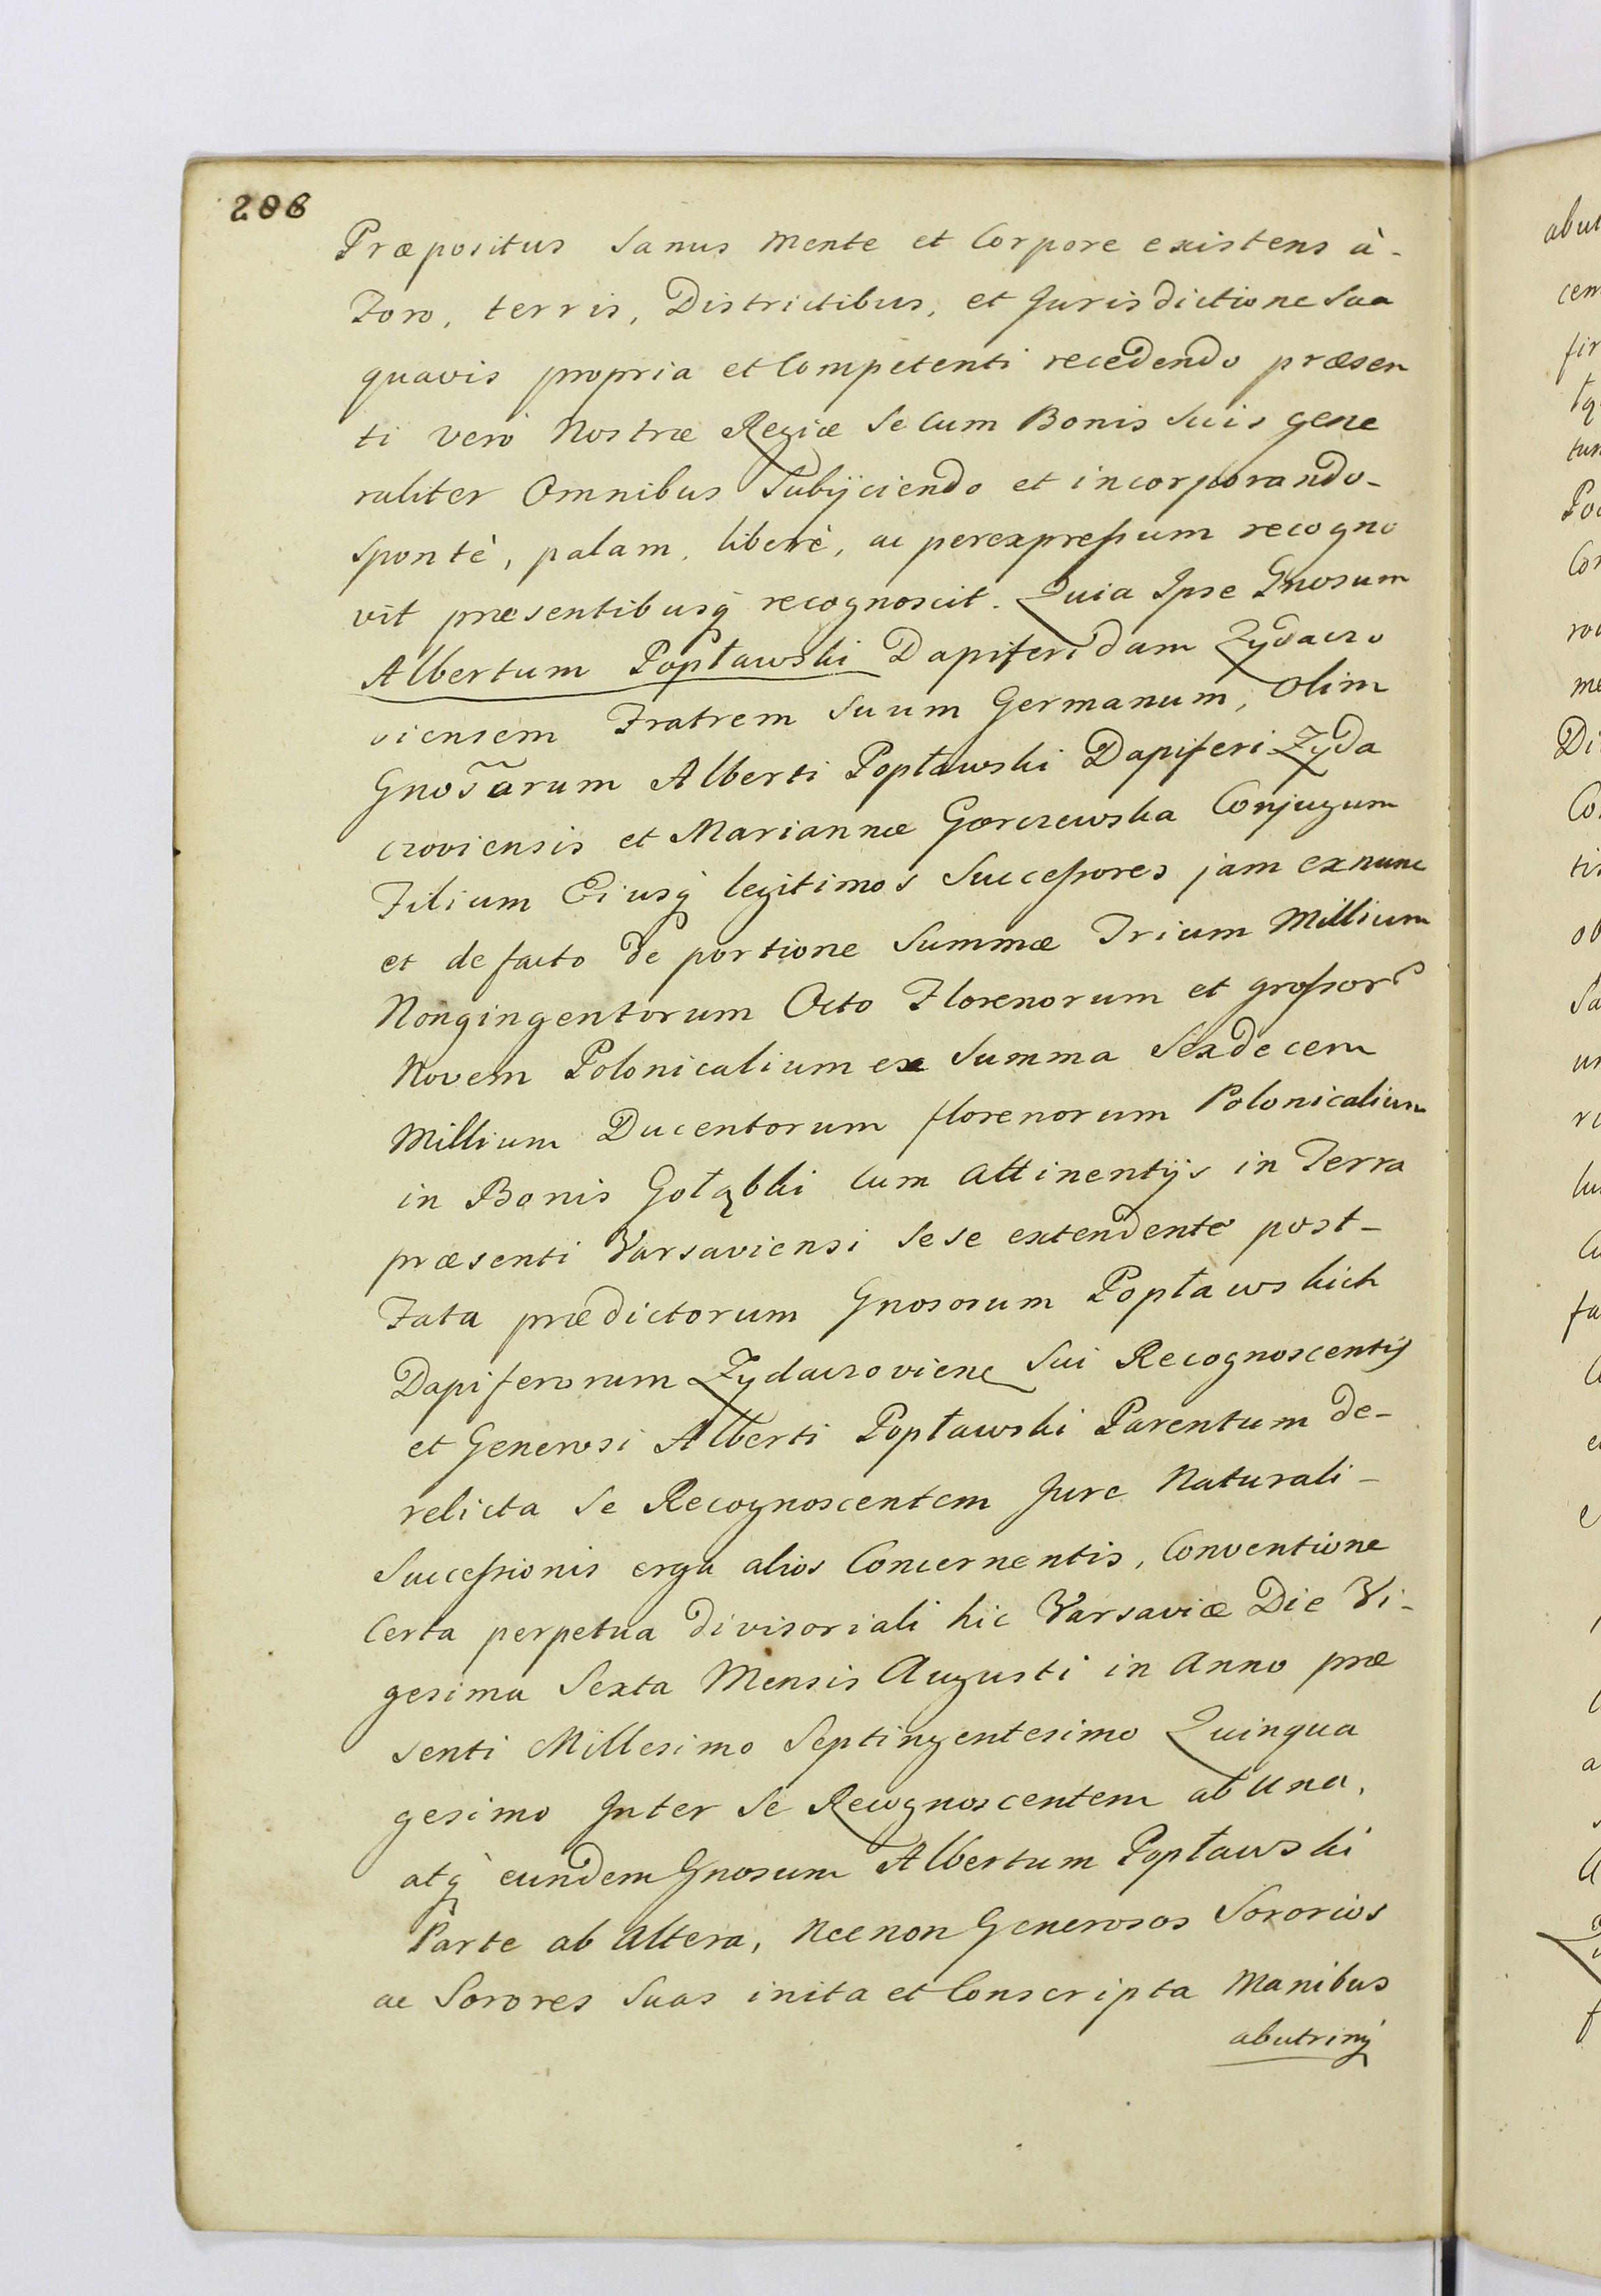 206
Præpositus Sanus mente et Corpore existens à-
Foro, terris, Districtibus, et Jurisdictione Sua
quavis propria et Competenti recedendo præsen
ti verò Nostræ Regiæ Se Cum Bonis Suis gene
raliter Omnibus Subijciendo et incorporando-
Spontè, palam, liberè, ac perexpressum recogno
vit præsentibusq recognoscit. Quia Ipse Gnosum
Albertum Popławski Dapiferidam Zydaczo
viensem Fratrem Suum Germanum, Olim
Gnosarum Alberti Popławski Dapiferi Zyda
czoviensis et Mariannæ Gorczewska Conjugum
Filium Eiusq legitimos Successores jam exnunc
et de facto de portione Summæ Trium Millium
Nongingentorum Octo Florenorum et grossor
Novem Polonicalium ex Summa Sexdecem
Millium Ducentorum florenorum Polonicalium
in Bonis Gołąbki Cum Attinentijs in Terra
præsenti Varsaviensi Sese extendente post-
Fata prædictorum Gnosorum Popławskich
Dapiferorum Zydaczovienc Sui Recognoscentis
et Generosi Alberti Popławski Parentum de-
relicta Se Recognoscentem Jure Naturali-
Successionis erga alios Concernentis, Conventione
Certa perpetua divisoriali hic Varsaviæ Die Vi-
gesima Sexta Mensis Augusti in Anno præ
senti Millesimo Septingentesimo Quinqua
gesimo Inter Se Recognoscentem ab Una,
atq eundem Gnosum Albertum Popławski
Parte ab Altera, Necnon Generosos Sororios
ac Sorores Suas inita et Conscripta Manibus
abutrinq